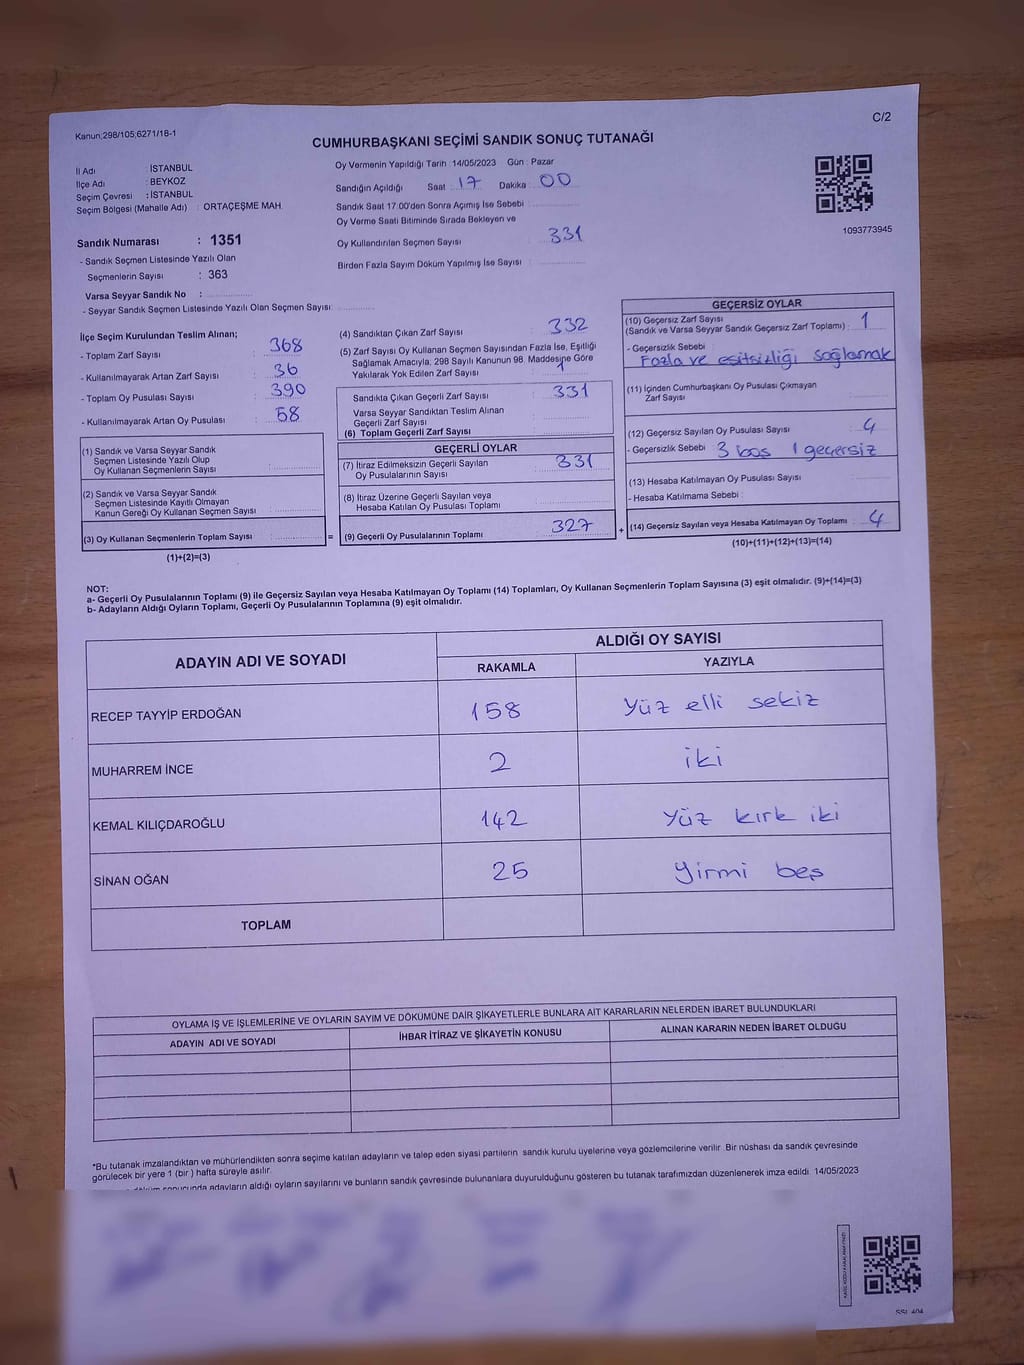 Kanun;298/105;6271/18-1
C/2
CUMHURBAŞKANI SEÇİMİ SANDIK SONUÇ TUTANAĞI
İl Adı : İSTANBUL
İlçe Adı : BEYKOZ
Seçim Çevresi : İSTANBUL
Seçim Bölgesi (Mahalle Adı) : ORTAÇEŞME MAH.
Sandık Numarası : 1351
- Sandık Seçmen Listesinde Yazılı Olan
Seçmenlerin Sayısı : 363
Varsa Seyyar Sandık No :
- Seyyar Sandık Seçmen Listesinde Yazılı Olan Seçmen Sayısı:
Oy Vermenin Yapıldığı Tarih : 14/05/2023 Gün : Pazar
Sandığın Açıldığı Saat 17 Dakika 00
Sandık Saat 17:00'den Sonra Açımış İse Sebebi :
Oy Verme Saati Bitiminde Sırada Bekleyen ve
Oy Kullandırılan Seçmen Sayısı : 331
Birden Fazla Sayım Döküm Yapılmış İse Sayısı :
1093773945
İlçe Seçim Kurulundan Teslim Alınan;
- Toplam Zarf Sayısı : 368
- Kullanılmayarak Artan Zarf Sayısı : 36
- Toplam Oy Pusulası Sayısı : 390
- Kullanılmayarak Artan Oy Pusulası : 58
(1) Sandık ve Varsa Seyyar Sandık
Seçmen Listesinde Yazılı Olup
Oy Kullanan Seçmenlerin Sayısı :
(2) Sandık ve Varsa Seyyar Sandık
Seçmen Listesinde Kayıtlı Olmayan
Kanun Gereği Oy Kullanan Seçmen Sayısı :
(3) Oy Kullanan Seçmenlerin Toplam Sayısı :
(1)+(2)=(3)
(4) Sandıktan Çıkan Zarf Sayısı : 332
(5) Zarf Sayısı Oy Kullanan Seçmen Sayısından Fazla İse, Eşitliği
Sağlamak Amacıyla; 298 Sayılı Kanunun 98. Maddesine Göre
Yakılarak Yok Edilen Zarf Sayısı : 1
Sandıkta Çıkan Geçerli Zarf Sayısı : 331
Varsa Seyyar Sandıktan Teslim Alınan
Geçerli Zarf Sayısı :
(6) Toplam Geçerli Zarf Sayısı :
GEÇERLİ OYLAR
(7) İtiraz Edilmeksizin Geçerli Sayılan
Oy Pusulalarının Sayısı : 331
(8) İtiraz Üzerine Geçerli Sayılan veya
Hesaba Katılan Oy Pusulası Toplamı :
= (9) Geçerli Oy Pusulalarının Toplamı : 327 +
GEÇERSİZ OYLAR
(10) Geçersiz Zarf Sayısı
(Sandık ve Varsa Seyyar Sandık Geçersiz Zarf Toplamı) : 1
- Geçersizlik Sebebi :
Fazla ve eşitsizliği sağlamak
(11) İçinden Cumhurbaşkanı Oy Pusulası Çıkmayan
Zarf Sayısı :
(12) Geçersiz Sayılan Oy Pusulası Sayısı : 4
- Geçersizlik Sebebi : 3 boş 1 geçersiz
(13) Hesaba Katılmayan Oy Pusulası Sayısı :
- Hesaba Katılmama Sebebi :
(14) Geçersiz Sayılan veya Hesaba Katılmayan Oy Toplamı : 4
(10)+(11)+(12)+(13)=(14)
NOT:
a- Geçerli Oy Pusulalarının Toplamı (9) ile Geçersiz Sayılan veya Hesaba Katılmayan Oy Toplamı (14) Toplamları, Oy Kullanan Seçmenlerin Toplam Sayısına (3) eşit olmalıdır. (9)+(14)=(3)
b- Adayların Aldığı Oyların Toplamı, Geçerli Oy Pusulalarının Toplamına (9) eşit olmalıdır.
ADAYIN ADI VE SOYADI
ALDIĞI OY SAYISI
RAKAMLA YAZIYLA
RECEP TAYYİP ERDOĞAN 158 Yüz elli sekiz
MUHARREM İNCE 2 iki
KEMAL KILIÇDAROĞLU 142 Yüz kırk iki
SİNAN OĞAN 25 Yirmi beş
TOPLAM
OYLAMA İŞ VE İŞLEMLERİNE VE OYLARIN SAYIM VE DÖKÜMÜNE DAİR ŞİKAYETLERLE BUNLARA AİT KARARLARIN NELERDEN İBARET BULUNDUKLARI
ADAYIN ADI VE SOYADI İHBAR İTİRAZ VE ŞİKAYETİN KONUSU ALINAN KARARIN NEDEN İBARET OLDUĞU
*Bu tutanak imzalandıktan ve mühürlendikten sonra seçime katılan adayların ve talep eden siyasi partilerin sandık kurulu üyelerine veya gözlemcilerine verilir. Bir nüshası da sandık çevresinde
görülecek bir yere 1 (bir ) hafta süreyle asılır.
sonucunda adayların aldığı oyların sayılarını ve bunların sandık çevresinde bulunanlara duyurulduğunu gösteren bu tutanak tarafımızdan düzenlenerek imza edildi. 14/05/2023